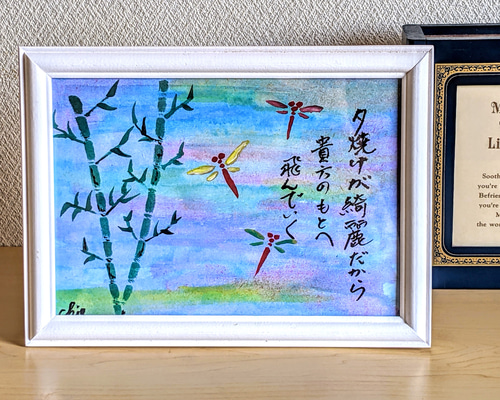 夕焼けが綺麗だから
貴方のもとへ
飛んでいく
chie
Sooth
you're
Befrie
you're
M
the wo